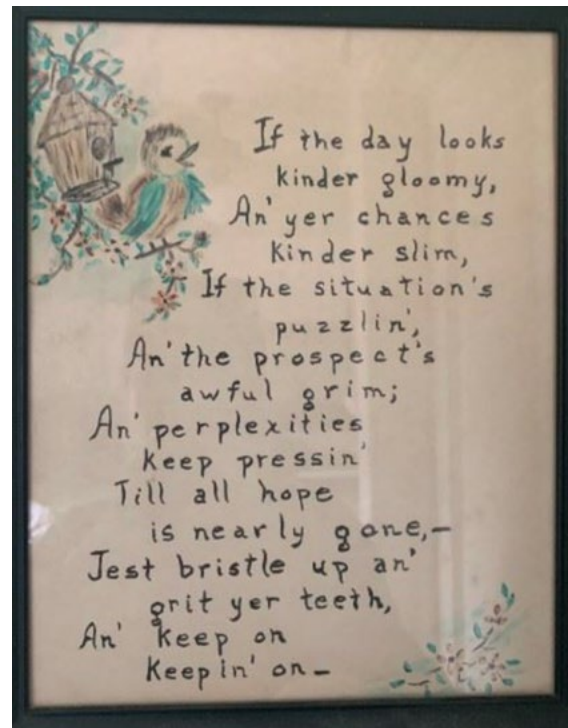 If the day looks
kinder gloomy,
An' yer chances
kinder slim,
If the situation's
puzzlin',
An' the prospect's
awful grim;
An' perplexities
keep pressin'
Till all hope
is nearly gone,—
Jest bristle up an'
grit yer teeth,
An' keep on
Keepin' on—